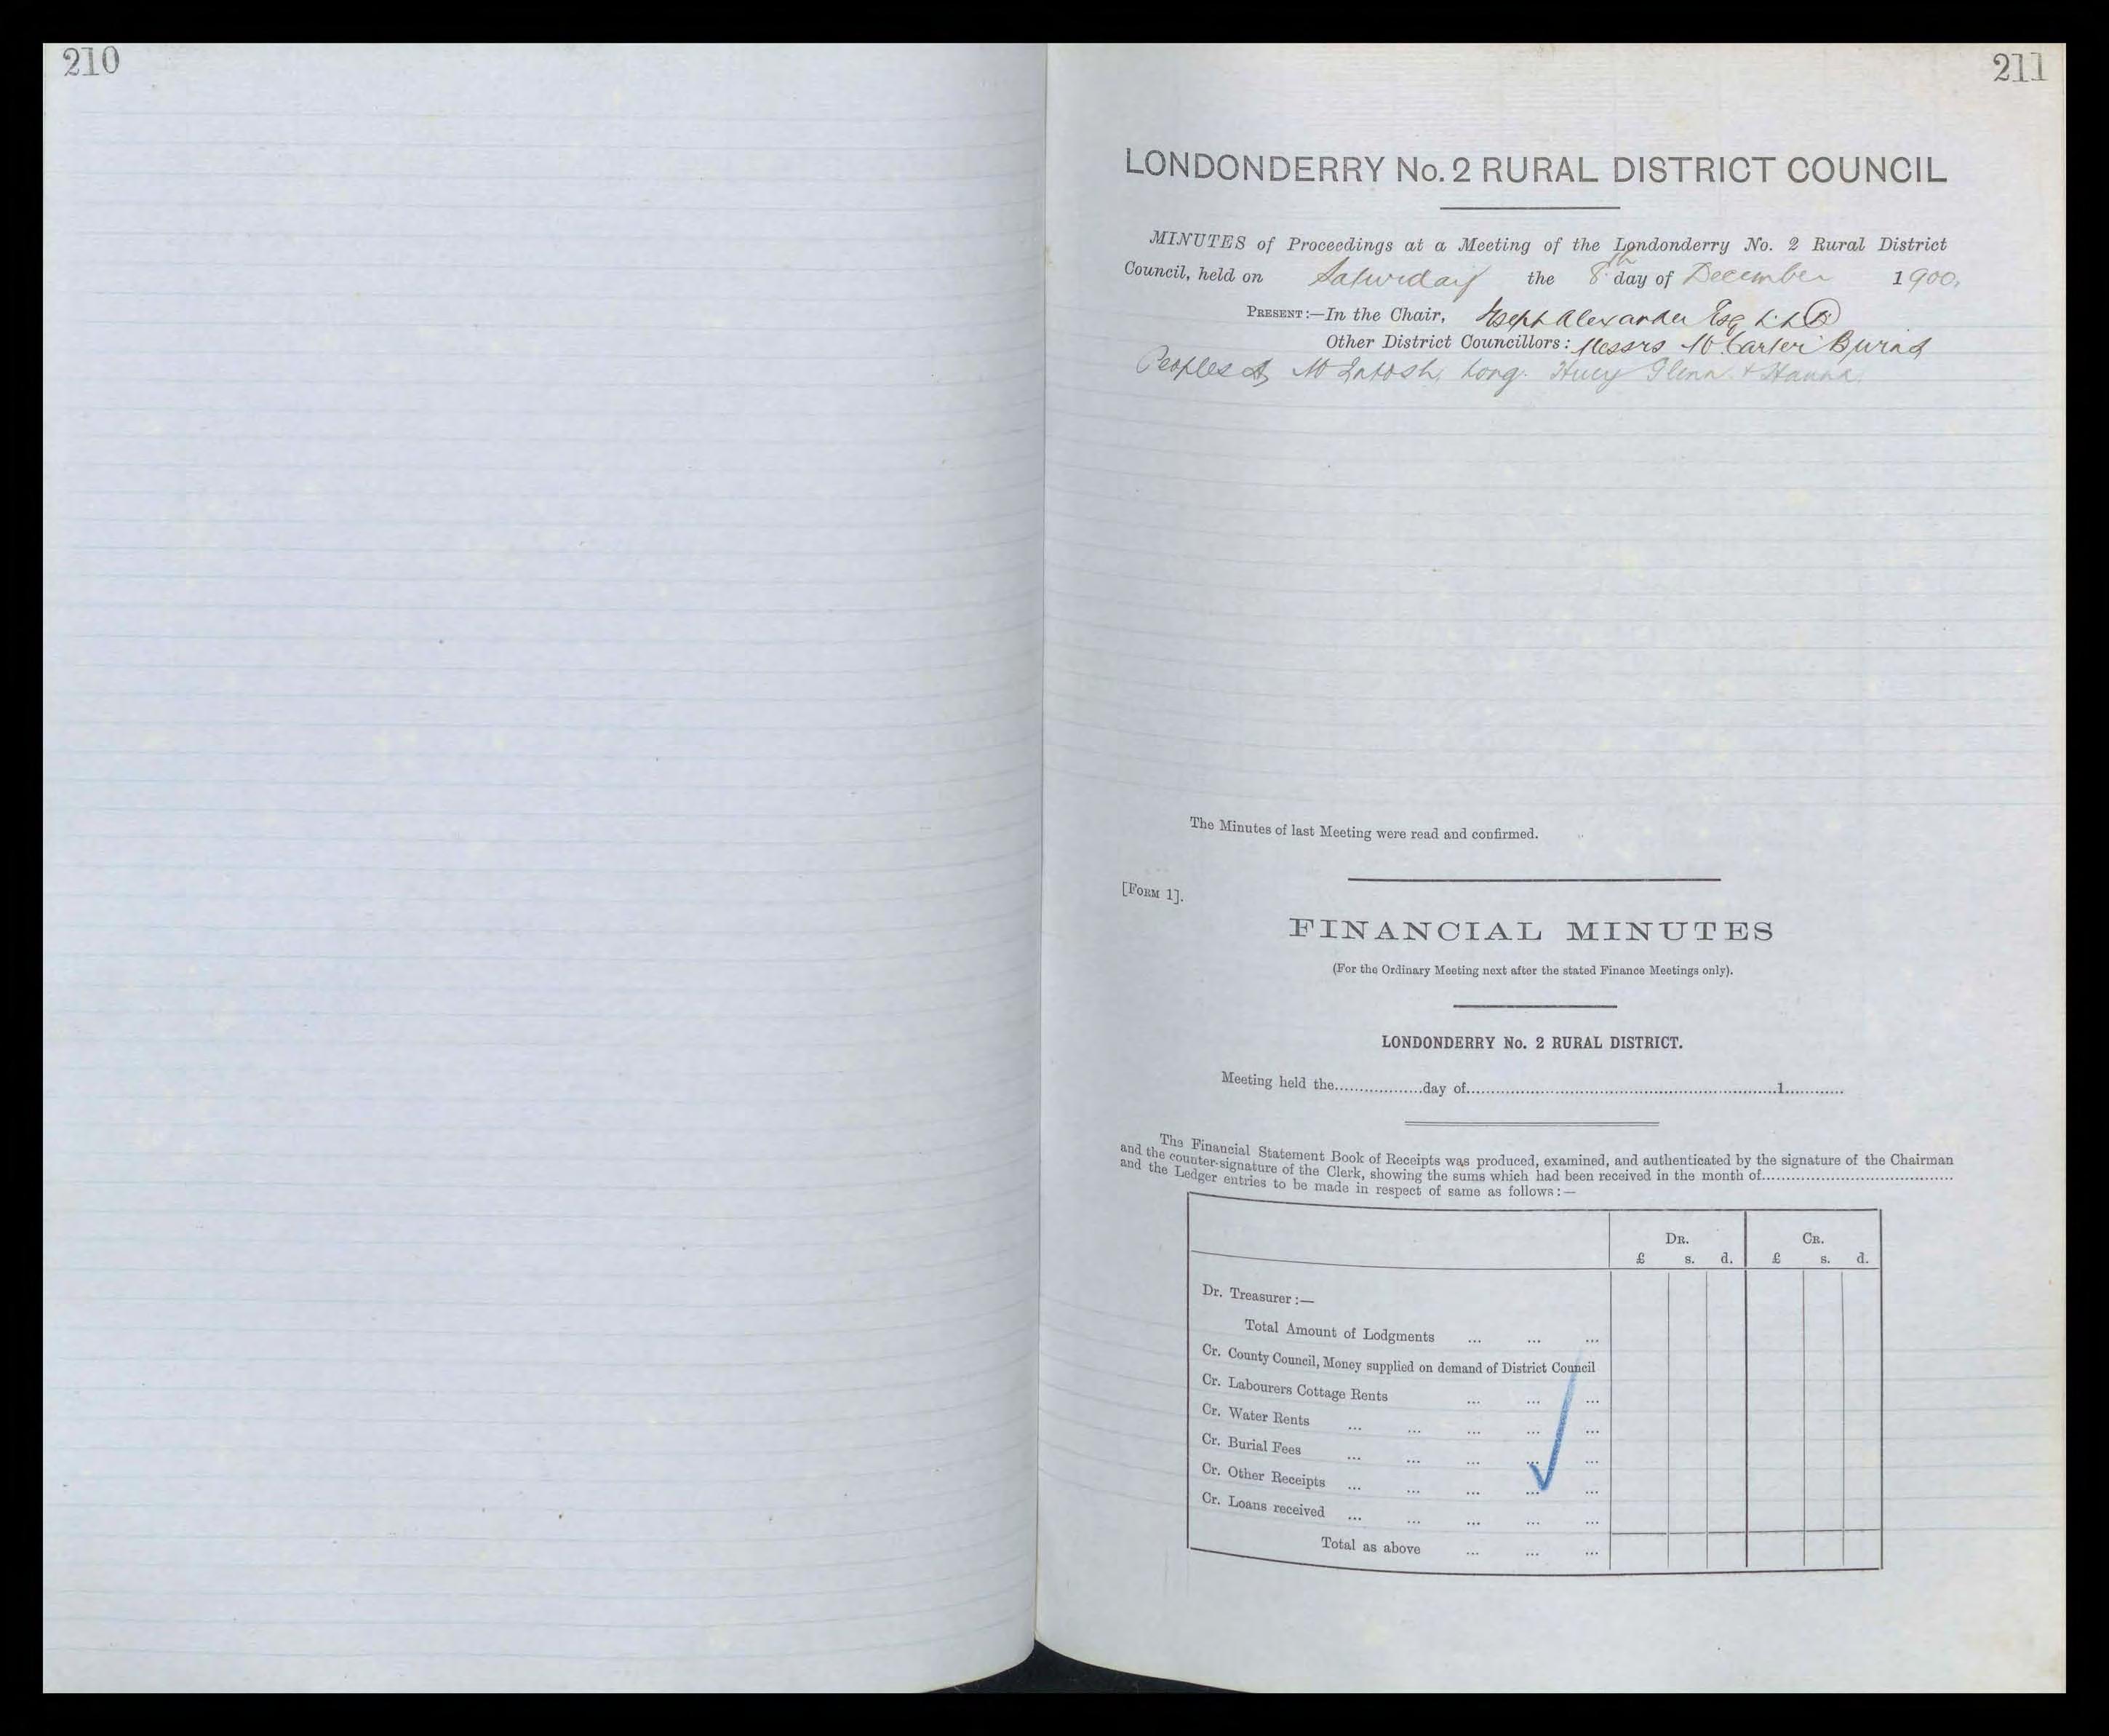 210
211
LONDONDERRY No. 2 RURAL DISTRICT COUNCIL
MINUTES of Proceedings at a Meeting of the Londonderry No. 2 Rural District
Council, held on Saturday the 8th day of December 1900.
PRESENT:—In the Chair, Joseph Alexander Esq
Other District Councillors: Messrs McCarter Burns
Peoples McIntosh, Long. Huey Glenn & Hanna.
The Minutes of last Meeting were read and confirmed.
[FORM 1].
FINANCIAL MINUTES
(For the Ordinary Meeting next after the stated Finance Meetings only).
LONDONDERRY No. 2 RURAL DISTRICT.
Meeting held the.................day of...............................................................1............
The Financial Statement Book of Receipts was produced, examined, and authenticated by the signature of the Chairman
and the counter-signature of the Clerk, showing the sums which had been received in the month of......................................
and the Ledger entries to be made in respect of same as follows:—
DR. CR.
£ s. d. £ s. d.
Dr. Treasurer:—
Total Amount of Lodgments ... ... ...
Cr. County Council, Money supplied on demand of District Council
Cr. Labourers Cottage Rents ... ... ...
Cr. Water Rents ... ... ... ... ...
Cr. Burial Fees ... ... ... ... ...
Cr. Other Receipts ... ... ... ... ...
Cr. Loans received ... ... ... ... ...
Total as above ... ... ...